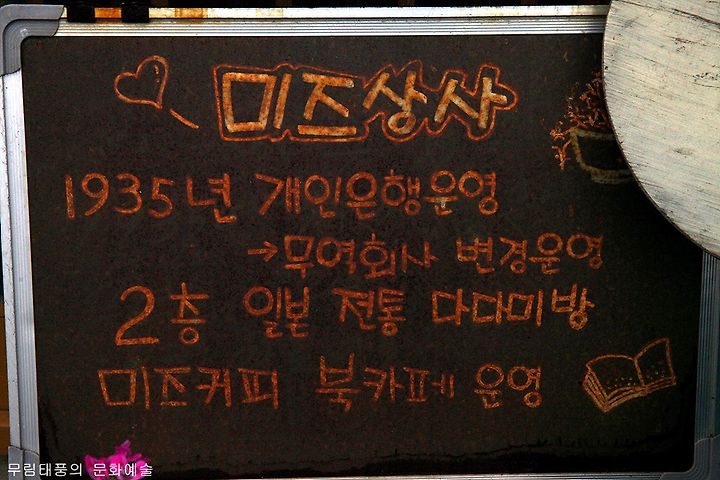 미즈상사
1935년 개인은행운영
→무역회사 변경운영
2층 일본 전통 다다미방
미즈커피 북카페 운영
무림태풍의 문화예술